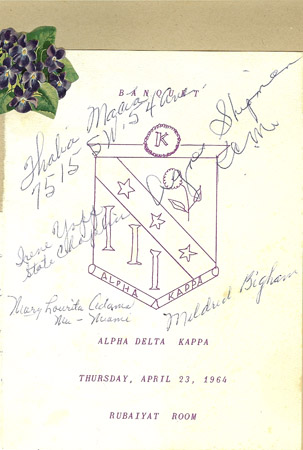 BANQUET
Thalia Macris
7515 SW. 54 Ave
Agnes Shipman
K
Irene
State Chaplain
ALPHA KAPPA
Mary Lourita Adams
Nu - Miami
Mildred Bigham
ALPHA DELTA KAPPA
THURSDAY, APRIL 23, 1964
RUBAIYAT ROOM